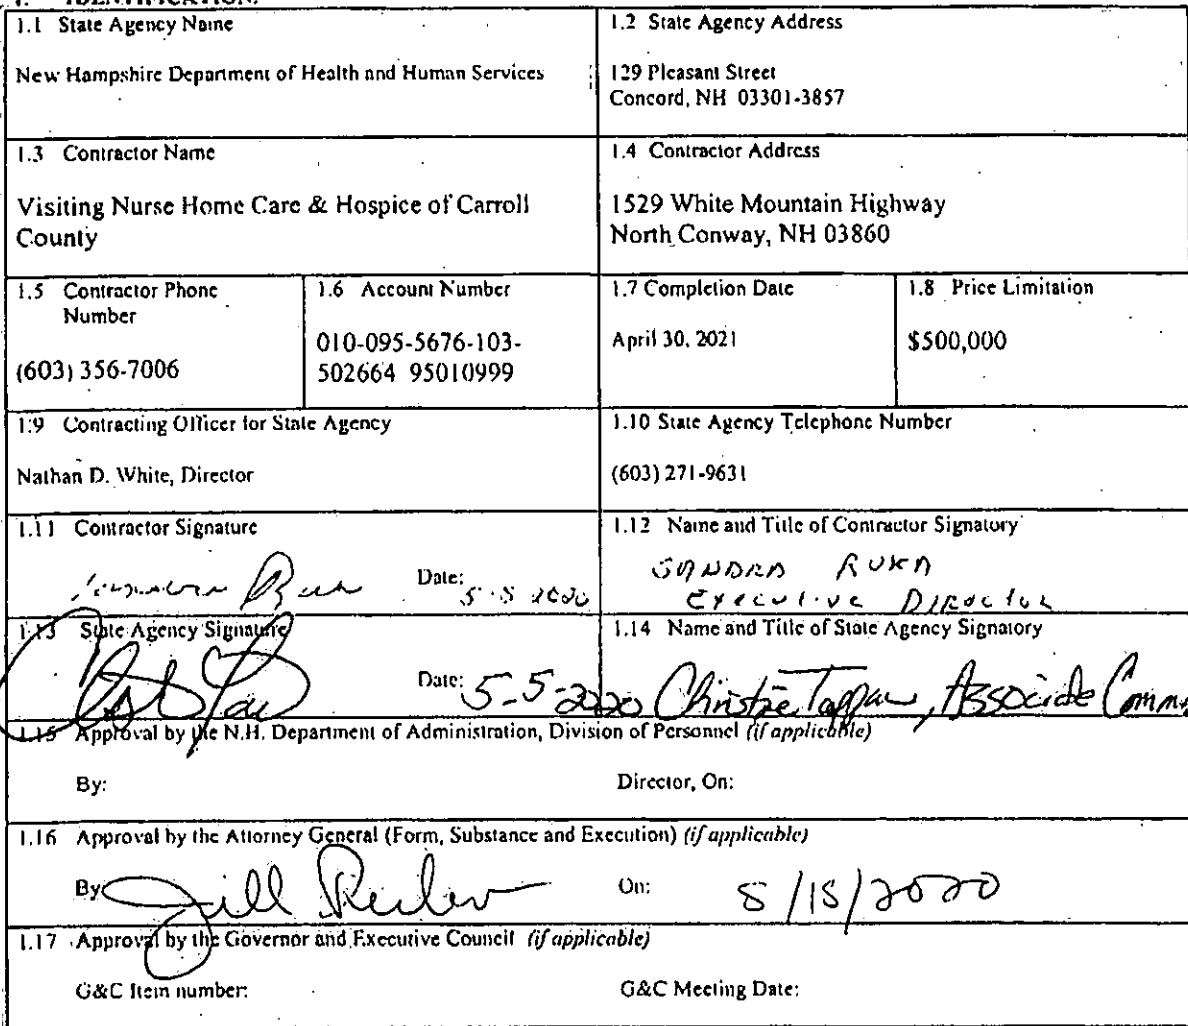 1. IDENTIFICATION.
1.1 State Agency Name
New Hampshire Department of Health and Human Services
1.2 State Agency Address
129 Pleasant Street
Concord, NH 03301-3857
1.3 Contractor Name
Visiting Nurse Home Care & Hospice of Carroll
County
1.4 Contractor Address
1529 White Mountain Highway
North Conway, NH 03860
1.5 Contractor Phone
Number
(603) 356-7006
1.6 Account Number
010-095-5676-103-
502664 95010999
1.7 Completion Date
April 30, 2021
1.8 Price Limitation
$500,000
1.9 Contracting Officer for State Agency
Nathan D. White, Director
1.10 State Agency Telephone Number
(603) 271-9631
1.11 Contractor Signature
Date: 5-5 2020
1.12 Name and Title of Contractor Signatory
SANDRA RUKA
Executive Director
1.13 State Agency Signature
Date: 5-5-2020
1.14 Name and Title of State Agency Signatory
Christine Tappan, Associate Comm
1.15 Approval by the N.H. Department of Administration, Division of Personnel (if applicable)
By:
Director, On:
1.16 Approval by the Attorney General (Form, Substance and Execution) (if applicable)
By: Jill
On: 5/15/2020
1.17 Approval by the Governor and Executive Council (if applicable)
G&C Item number:
G&C Meeting Date: